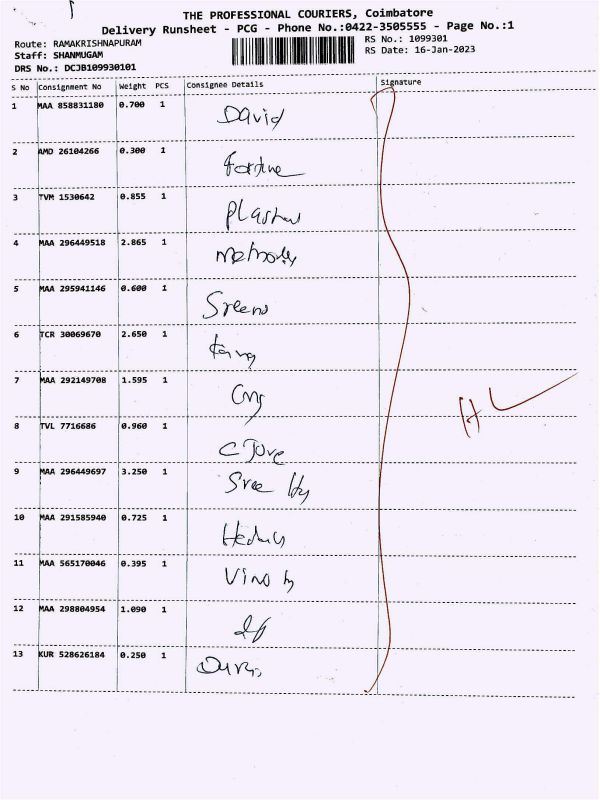 THE PROFESSIONAL COURIERS, Coimbatore
Delivery Runsheet - PCG - Phone No.:0422-3505555 - Page No.:1
Route: RAMAKRISHNAPURAM
RS No.: 1099301
Staff: SHANMUGAM
RS Date: 16-Jan-2023
DRS No.: DCJB109930101
S No Consignment No Weight PCS Consignee Details Signature
1 MAA 858831180 0.700 1 David
2 AMD 26104266 0.300 1
3 TVM 1530642 0.855 1
4 MAA 296449518 2.865 1
5 MAA 295941146 0.600 1
6 TCR 30069670 2.650 1
7 MAA 292149708 1.595 1
8 TVL 7716686 0.960 1
9 MAA 296449697 3.250 1 Sree
10 MAA 291585940 0.725 1
11 MAA 565170046 0.395 1
12 MAA 298804954 1.090 1
13 KUR 528626184 0.250 1